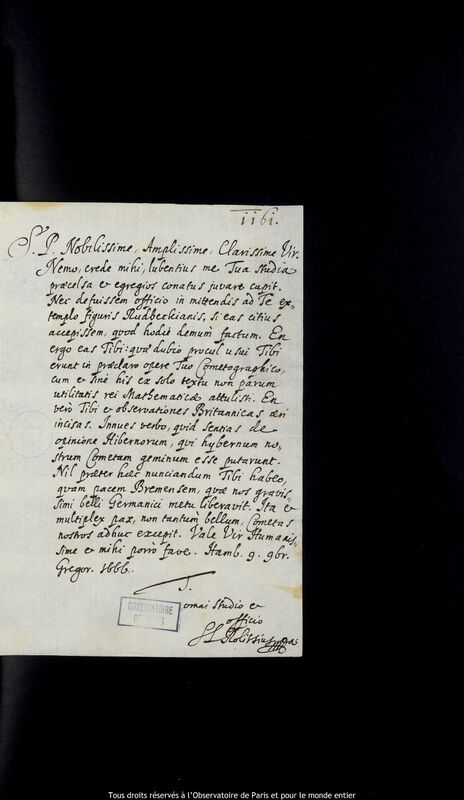 1161.
S. P. Nobilissime, Amplissime, Clarissime Vir.
Nemo, crede mihi, lubentius me Tua studia
præcelsa et egregios conatus juvare cupit.
Nec defuissem officio in mittendis ad Te ex=
templo figuris Rudbeckianis, si eas citius
accepissem, quod hodie demum factum. En
ergo eas Tibi: quæ dubio procul usui Tibi
erunt in præclaro opere Tuo Cometographico,
cum et sine his ex solo textu non parum
utilitatis rei Mathematicæ attulisti. En
verò Tibi et observationes Britannicas æri
incisas. Innues verbo, quid sentias de
opinione Hibernorum, qui hybernum no=
strum Cometam geminum esse putarunt.
Nil præter hæc nunciandum Tibi habeo,
quam pacem Bremensem, quæ nos gravis=
simi belli Germanici metu liberavit. Ita et
multiplex pax, non tantùm bellum, Cometas
nostros adhuc excepit. Vale Vir Humanis=
sime et mihi porrò fave. Hamb. 9. 9br.
Gregor. 1666.
T.
omni studio et
officio
OBSERVATOIRE
DE PARIS
Tous droits réservés à l'Observatoire de Paris et pour le monde entier